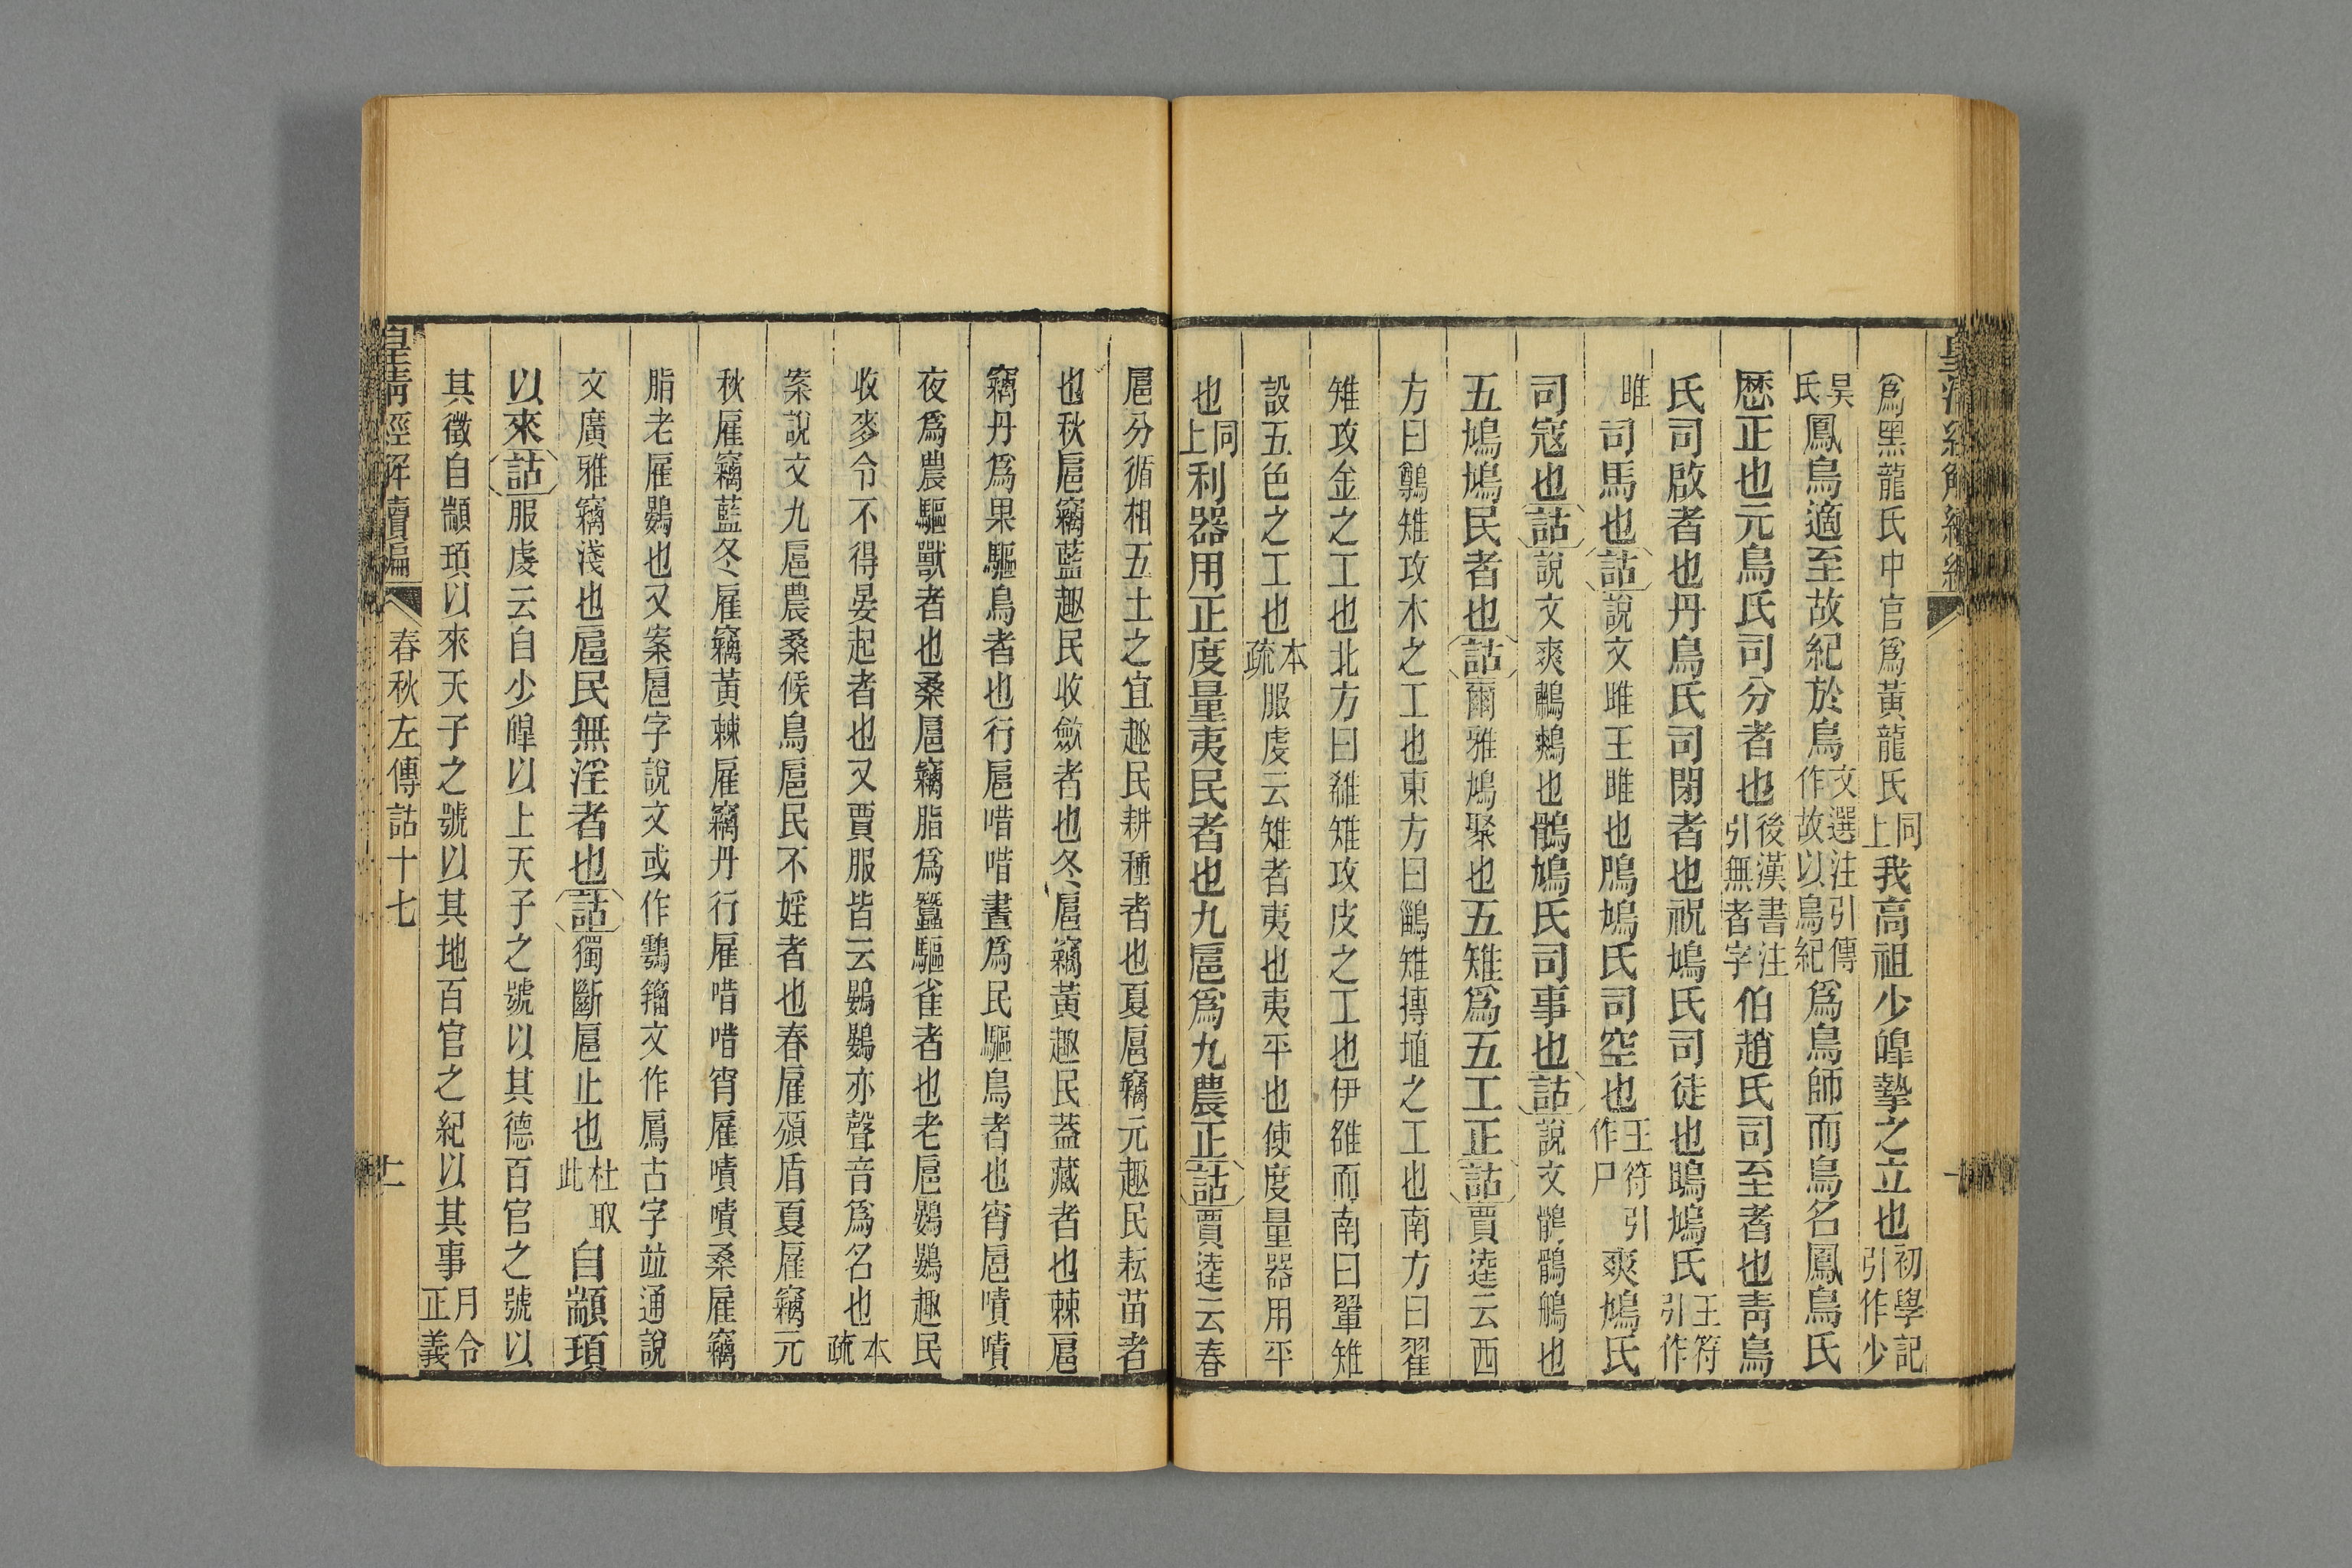 爲黑龍氏中官爲黃龍氏同上我高祖少皥摯之立也初學記引作少
昊氏鳳鳥適至故紀於鳥文選注引傳作故以鳥紀爲鳥師而鳥名鳳鳥氏
歷正也元鳥氏司分者也後漢書注引無者字伯趙氏司至者也靑鳥
氏司啟者也丹鳥氏司閉者也祝鳩氏司徒也鴡鳩氏王符引作
雎司馬也詁說文雎王雎也鳲鳩氏司空也王符引作尸爽鳩氏
司寇也詁說文爽鷞鶇也鶻鳩氏司事也詁說文鶻鶻鵃也
五鳩鳩民者也詁爾雅鳩聚也五雉爲五工正詁賈逵云西
方曰鷷雉攻木之工也東方曰鶅雉摶埴之工也南方曰翟
雉攻金之工也北方曰鵗雉攻皮之工也伊雒而南曰翬雉
設五色之工也本疏服虔云雉者夷也夷平也使度量器用平
也同上利器用正度量夷民者也九扈爲九農正詁賈逵云春
扈分循相五土之宜趣民耕種者也夏扈竊元趣民耘苗者
也秋扈竊藍趣民收斂者也冬扈竊黃趣民蓋藏者也棘扈
竊丹爲果驅鳥者也行扈唶唶晝爲民驅鳥者也宵扈嘖嘖
夜爲農驅獸者也桑扈竊脂爲蠶驅雀者也老扈鷃鷃趣民
收麥令不得晏起者也又賈服皆云鷃鷃亦聲音爲名也本疏
案說文九扈農桑候鳥扈民不婬者也春雇鳻盾夏雇竊元
秋雇竊藍冬雇竊黃棘雇竊丹行雇唶唶宵雇嘖嘖桑雇竊
脂老雇鷃也又案扈字說文或作鶚籀文作鳸古字並通說
文廣雅竊淺也扈民無淫者也詁獨斷扈止也杜取此自顓頊
以來詁服虔云自少皥以上天子之號以其德百官之號以
其徵自顓頊以來天子之號以其地百官之紀以其事月令正義
皇淸經解續編
春秋左傳詁十七